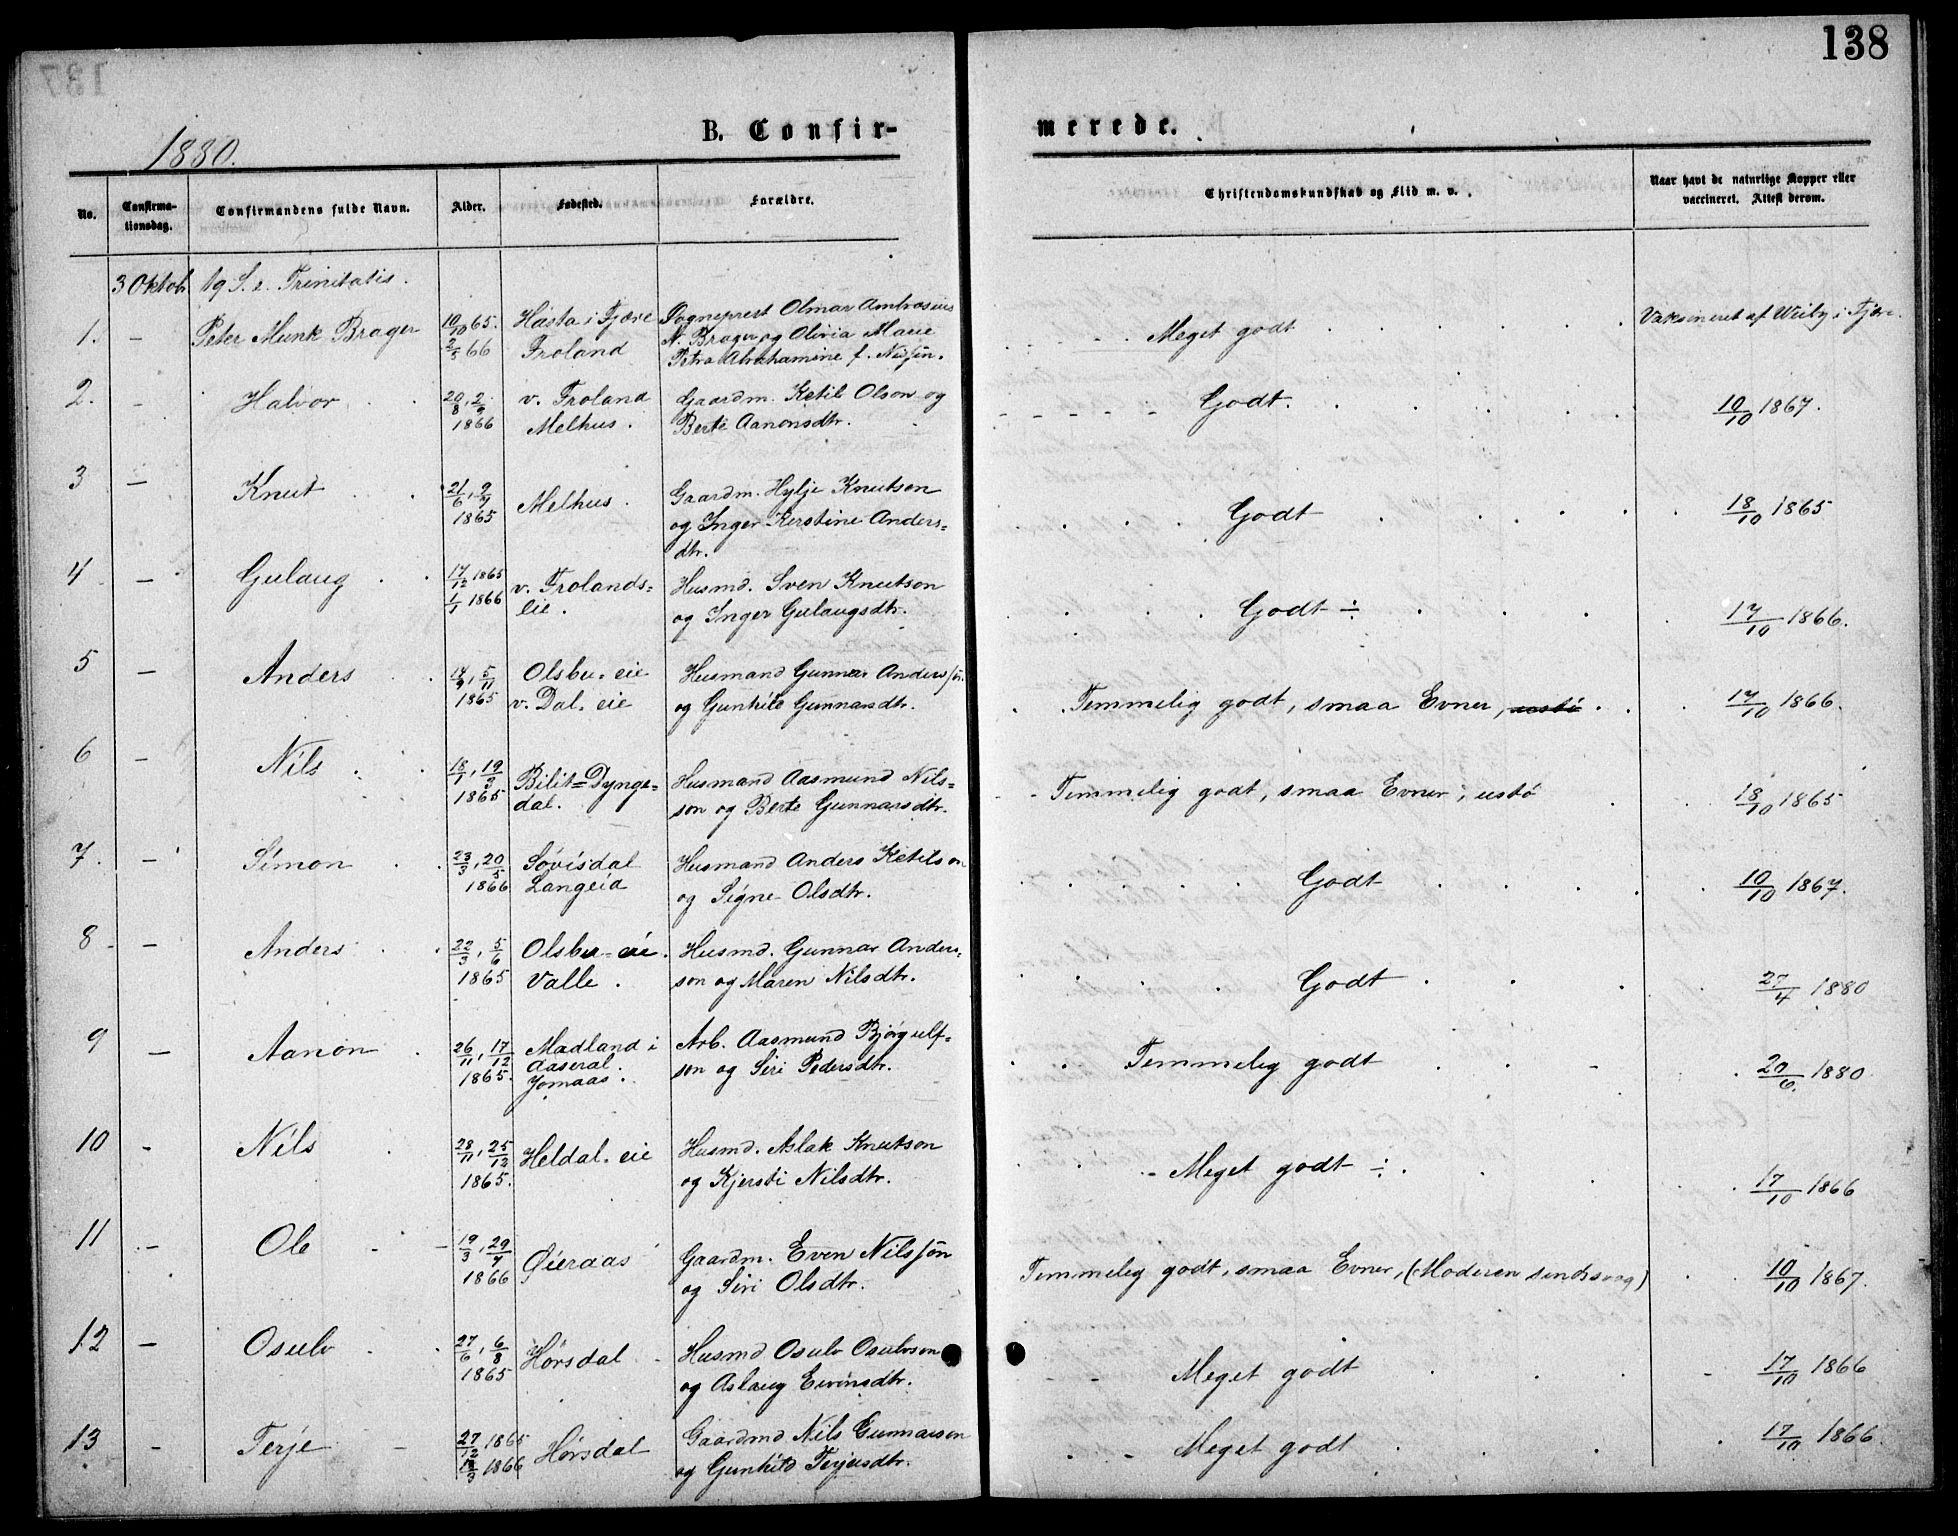 138
1880.
B. Confir-
merede.
No.
Confirma-
tionsdag.
Confirmandens fulde Navn.
Alder.
Fødested.
Forældre.
Christendomskundskab og Flid m. v.
Naar havt de naturlige Kopper eller
vaccineret. Attest derom.
3 Oktob. 19 S. e. Trinitatis.
1. — Peter Munk Brager
10/10 65.
2/5 66
Hasta i Fjære
Froland
Sogneprest Olmar Ambrosius
N. Brager og Olivia Marie
Petra Abrahamine f. Nilsen.
Meget godt
Vaksineret af Wiiby i Fjære.
2. — Halvor
20/8, 2/9
1866
v. Froland
Melhus.
Gaardm. Ketil Olson og
Berte Aanonsdtr.
Godt.
10/10 1867.
3 — Knut
21/6, 9/7
1865
Melhus.
Gaardm. Hylje Knutson
og Inger Kerstine Anders=
dtr.
Godt
18/10 1865
4 — Gulaug
17/12 1865
1/1 1866
v. Frolands=
eie.
Husmd. Sven Knutson
og Inger Gulaugsdtr.
Godt ÷
17/10 1866.
5 — Anders
14/9, 5/11
1865
Olsbu. eie
v. Dal. eie
Husmand Gunnar Andersøn
og Gunhild Gunnarsdtr.
Temmelig godt, smaa Evner, ustø
17/10 1866.
6 — Nils
18/1, 19/3
1865
Bilit=Dynge=
dal.
Husmand Aasmund Nils=
son og Berte Gunnarsdtr.
Temmelig godt, smaa Evner, ustø
18/10 1865
7. — Simon
23/3, 20/5
1866
Søvisdal
Langeid
Husmand Anders Ketilson
og Signe Olsdtr.
Godt
10/10 1867.
8 — Anders
22/3, 5/6
1865
Olsbu-eie.
Valle.
Husmd. Gunnar Anders=
son og Maren Nilsdtr.
Godt
27/4 1880
9 — Aanon
26/11, 17/12
1865.
Madland i
Aaseral.
Jomaas.
Arb. Aasmund Bjørgulf=
son og Siri Pedersdtr.
Temmelig godt
20/6. 1880
10 — Nils
28/11, 25/12
1865.
Heldal. eie
Husmd. Aslak Knutson
og Kjersti Nilsdtr.
Meget godt ÷
17/10 1866
11 — Ole
19/3, 29/7
1866
Øieraas
Gaardm. Even Nilssøn
og Siri Olsdtr.
Temmelig godt, smaa Evner, (Moderen sindssvag)
10/10 1867.
12 — Osulv
27/6, 6/8
1865
Hørsdal
Husmd Osulv Osulvson
og Aslaug Eivindsdtr.
Meget godt
17/10 1866
13 — Terje
27/12 1865
1866
Hørsdal
Gaardmd Nils Gunnarson
og Gunhild Terjesdtr.
Meget godt
17/10 1866.